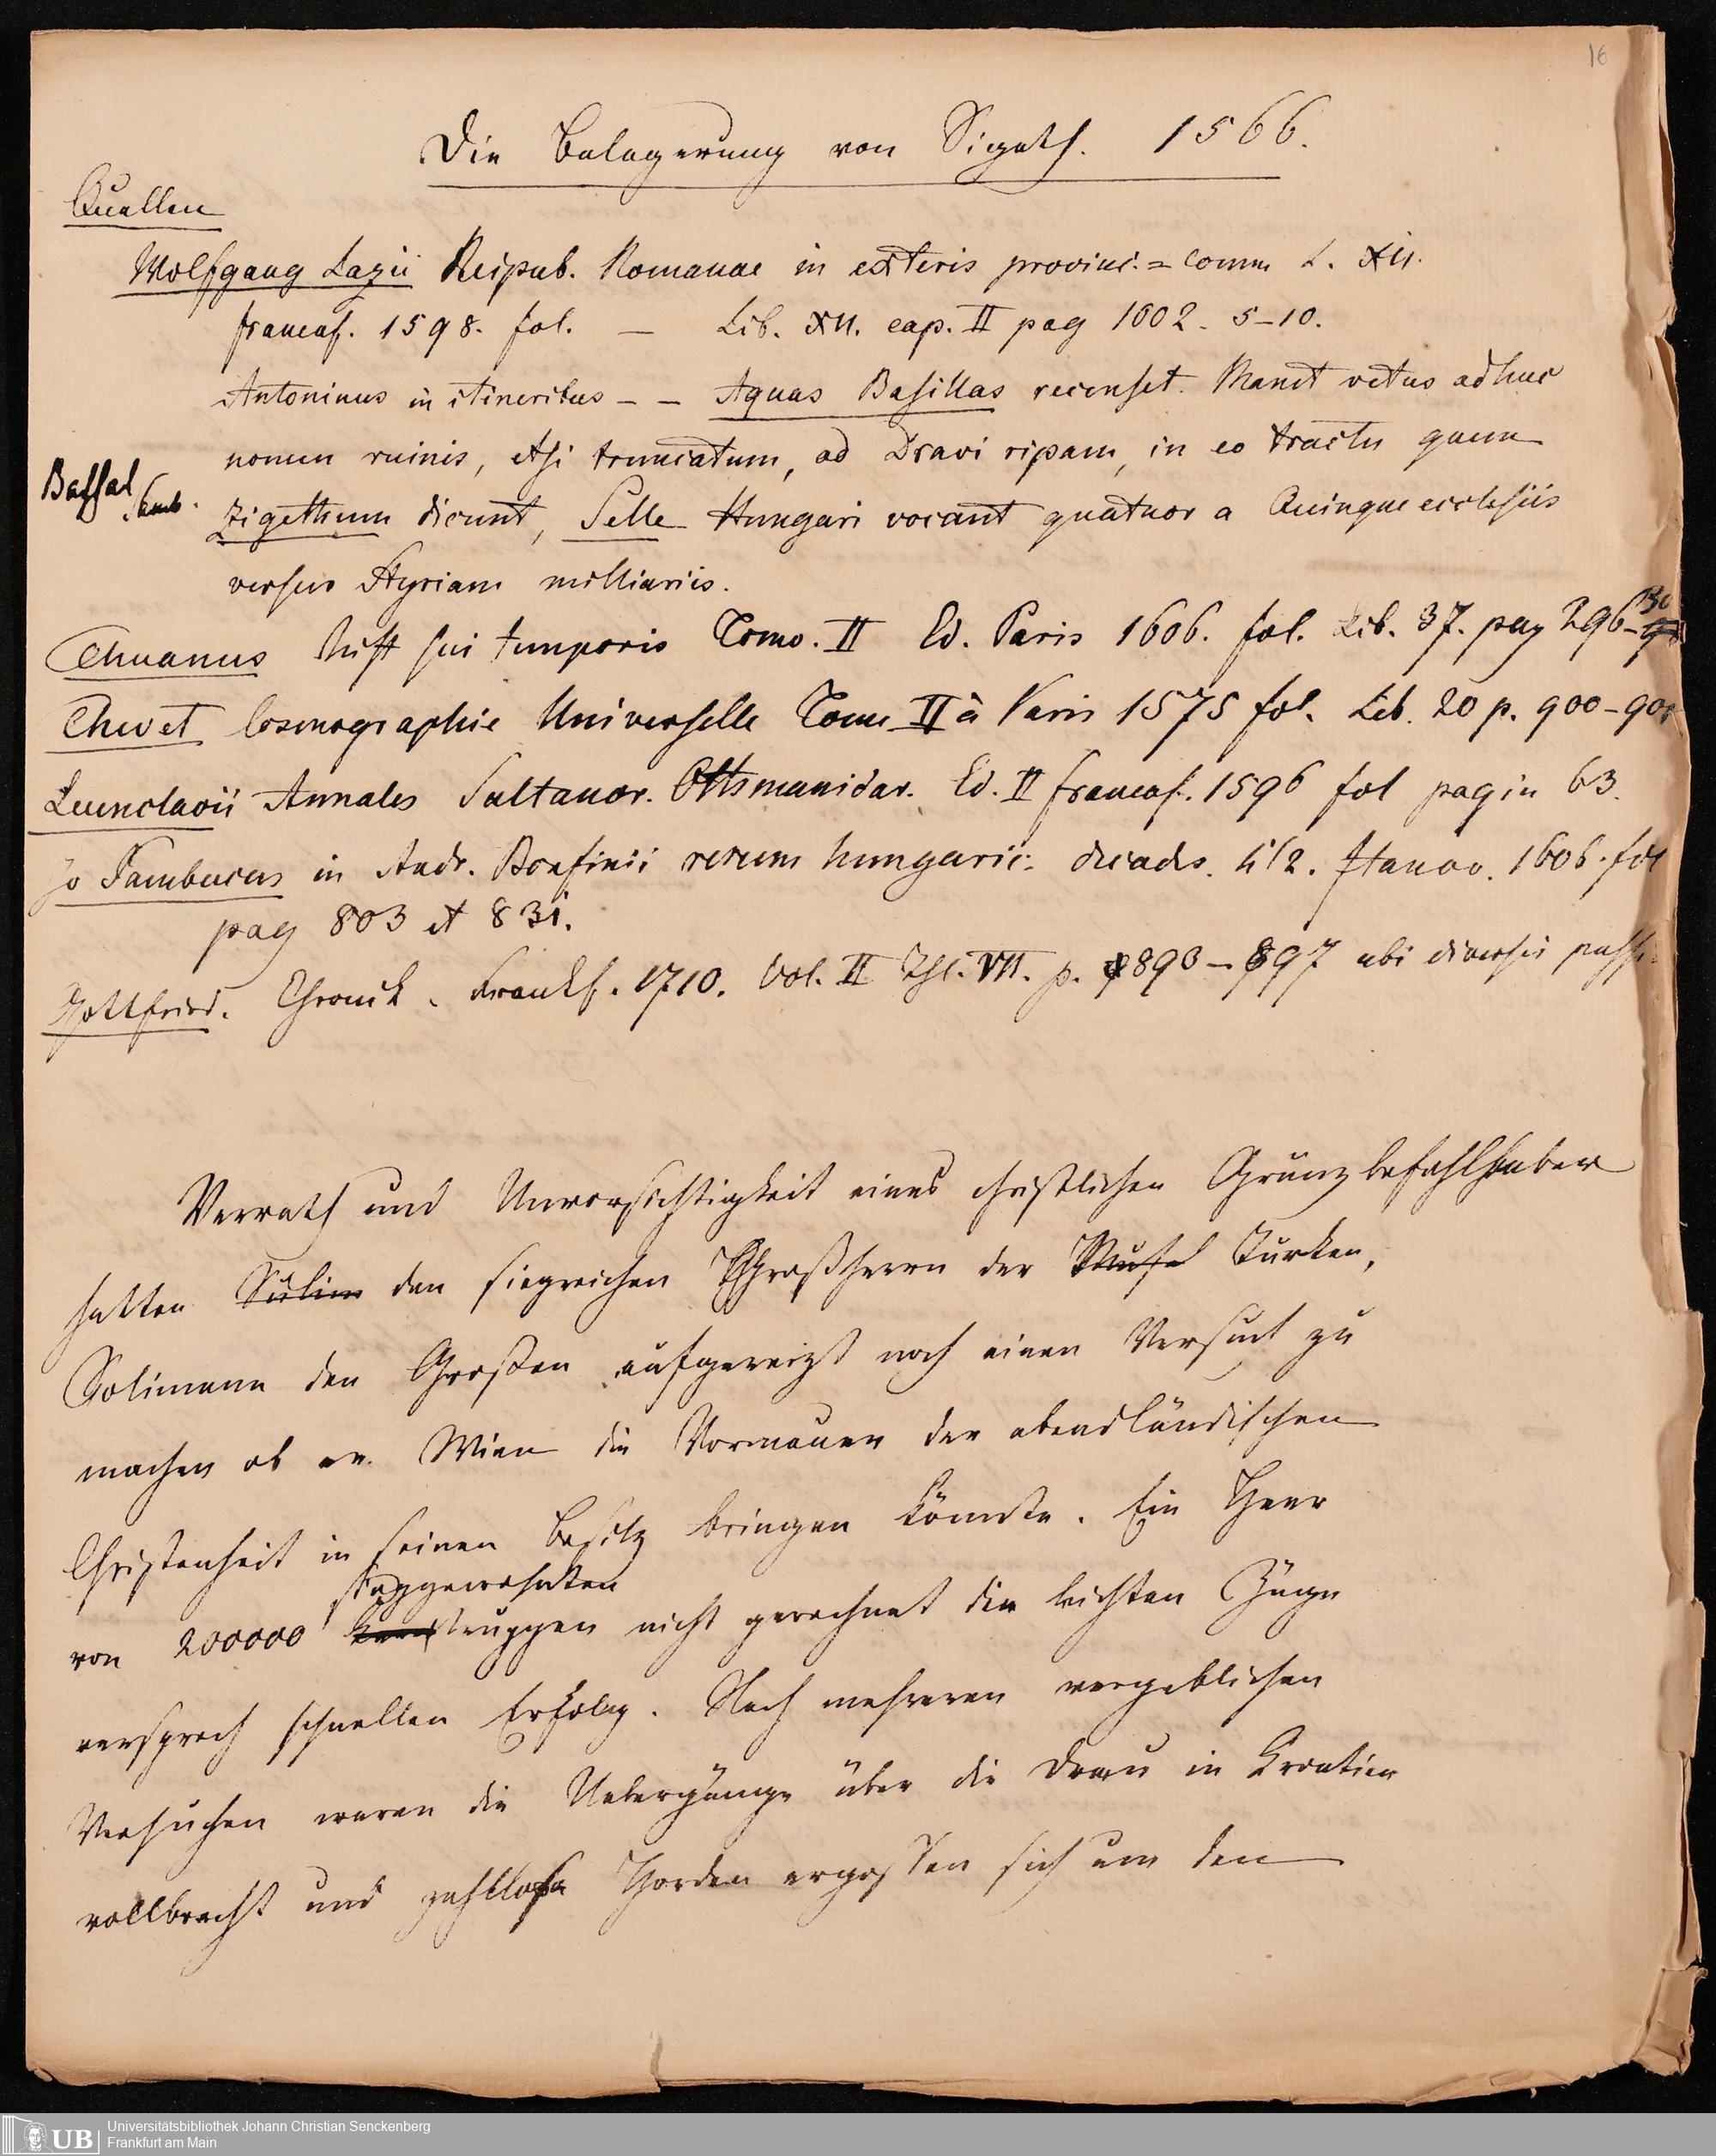 16
Die Belagerung von Sigeth. 1566.
Quellen
Wolfgang Lazii Reipub. Romanae in exteris provinc. = comm L. XII.
francof. 1598. fol. — Lib. XII. cap. II pag 1002. 5-10.
Antoninus in itineribus - - Aquas Basillas recenset. Manet vetus adhuc
nomen ruinis, etsi truncatum, ad Dravi ripam, in eo tractu quem
Zigethum dicunt, Selle Hungari vocant quatuor a Quinque ecclesiis
versus Styriam milliariis.
Thuanus hist sui temporis Tomo. II Ed. Paris 1606. fol. Lib. 37. pag 296-
Thevet Cosmographie Universelle Tome II à Paris 1575 fol. Lib. 20 p. 900-
Leunclavii Annales Sultanor. Othmanidar. Ed. II francof. 1596 fol pagin 63.
Jo Sambucus in Andr. Bonfinii rerum hungaric. decades. Hanov. 1606. fol
pag 803 et 831.
Gottfried. Chronick. Frankf. 1710. Vol. II Thl. VII. p. 893-897 ubi diversis
Verrath und Unvorsichtigkeit eines christlichen Gränzbefehlhaber
hatten Sülim den siegreichen Großherrn der Musel Türken,
Solimann den Großen aufgereizt noch einen Versuch zu
machen ob er Wien die Vormauer der abendländischen
Christenheit in seinen Besitz bringen könnte. Ein Heer
sieggewohnten
von 200000 truppen nicht gerechnet die leichten Züge
versprach schnellen Erfolg. Nach mehreren vergeblichen
Versuchen waren die Uebergänge über die Drau in Kroatien
vollbracht und zahllose Horden ergossen sich um den
UB
Universitätsbibliothek Johann Christian Senckenberg
Frankfurt am Main